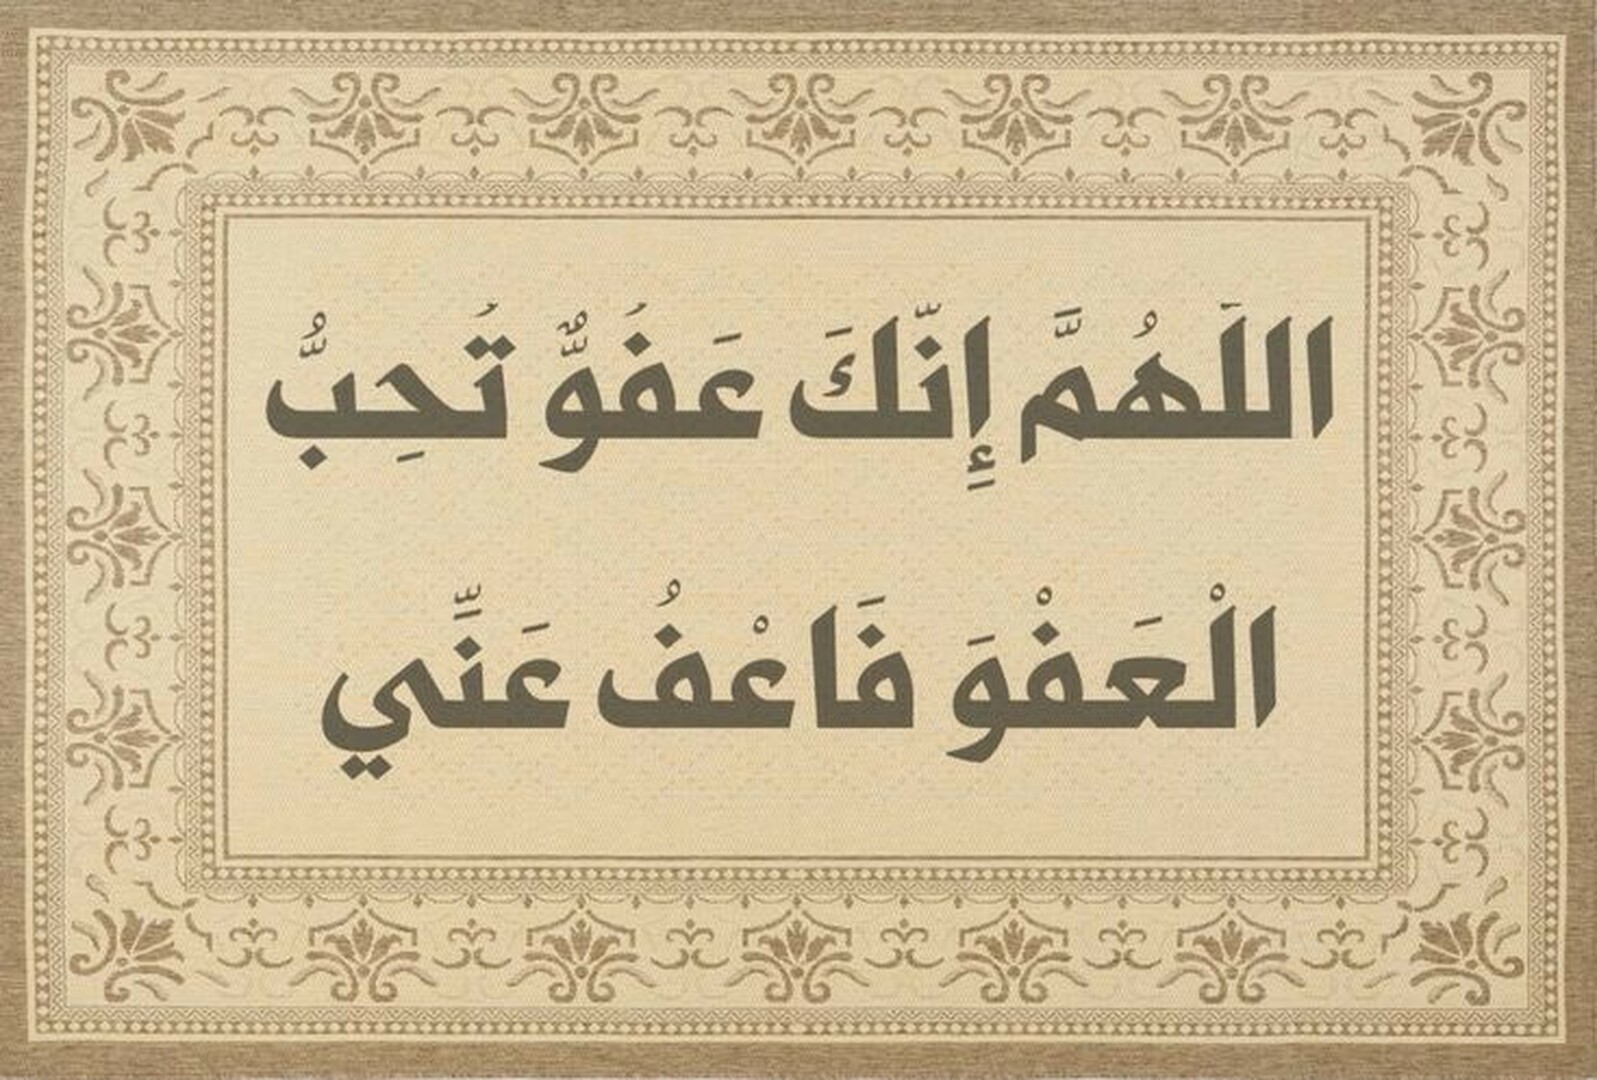 اللَهُمَّ إِنّكَ عَفُوٌّ تُحِبُّ
الْعَفْوَ فَاعْفُ عَنِّي